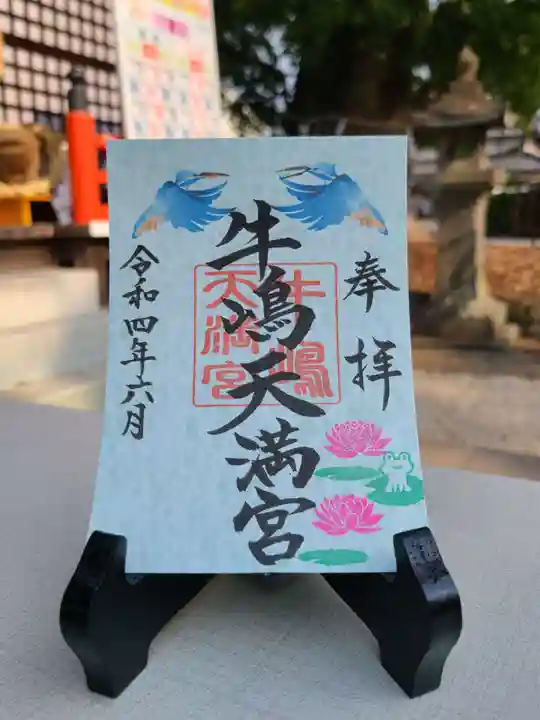 奉拝
牛嶋天満宮
牛嶋
天満宮
令和四年六月